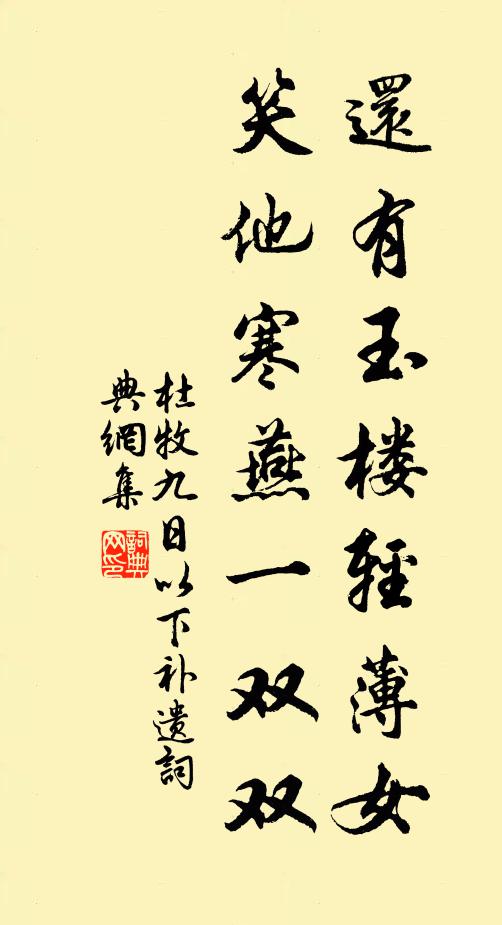 還有玉楼輕薄女
笑他寒燕一双双
杜牧九日以下补遗詞
典網集
詞典网印